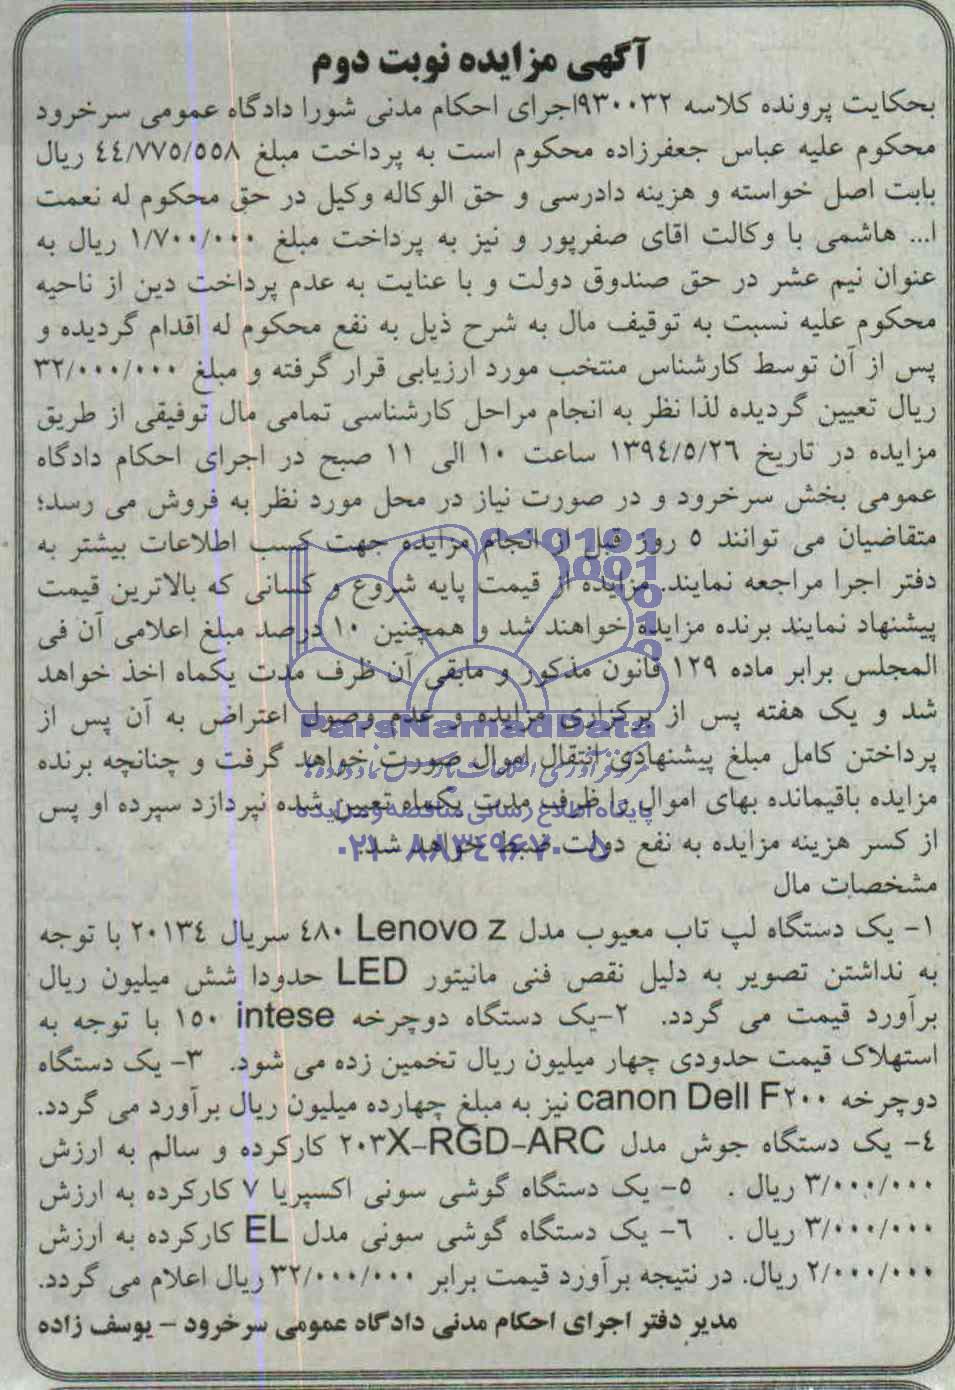 آگهی مزایده نوبت دوم
بحکایت پرونده کلاسه ۹۳۰۰۳۲اجرای احکام مدنی شورا دادگاه عمومی سرخرود
محکوم علیه عباس جعفرزاده محکوم است به پرداخت مبلغ ٤٤/٧٧٥/٥٥٨ ریال
بابت اصل خواسته و هزینه دادرسی و حق الوکاله وکیل در حق محکوم له نعمت
ا... هاشمی با وکالت اقای صفرپور و نیز به پرداخت مبلغ ۱/۷۰۰/۰۰۰ ریال به
عنوان نیم عشر در حق صندوق دولت و با عنایت به عدم پرداخت دین از ناحیه
محکوم علیه نسبت به توقیف مال به شرح ذیل به نفع محکوم له اقدام گردیده و
پس از آن توسط کارشناس منتخب مورد ارزیابی قرار گرفته و مبلغ ۳۲/۰۰۰/۰۰۰
ریال تعیین گردیده لذا نظر به انجام مراحل کارشناسی تمامی مال توفیقی از طریق
مزایده در تاریخ ۱۳۹٤/٥/۲٦ ساعت ۱۰ الی ۱۱ صبح در اجرای احکام دادگاه
عمومی بخش سرخرود و در صورت نیاز در محل مورد نظر به فروش می رسد؛
متقاضیان می توانند ٥ روز قبل از انجام مزایده جهت کسب اطلاعات بیشتر به
دفتر اجرا مراجعه نمایند. مزایده از قیمت پایه شروع و کسانی که بالاترین قیمت
پیشنهاد نمایند برنده مزایده خواهند شد و همچنین ۱۰ درصد مبلغ اعلامی آن فی
المجلس برابر ماده ۱۲۹ قانون مذکور و مابقی آن ظرف مدت یکماه اخذ خواهد
شد و یک هفته پس از برگزاری مزایده و عدم وصول اعتراض به آن پس از
ParsNamadData
پرداختن کامل مبلغ پیشنهادی انتقال اموال صورت خواهد گرفت و چنانچه برنده
مزایده باقیمانده بهای اموال را ظرف مدت یکماه تعیین شده نپردازد سپرده او پس
پایگاه اطلاع رسانی مناقصه و مزایده
از کسر هزینه مزایده به نفع دولت ضبط خواهد شد.
۰۲۱-۸۸۳٤۹٦۷۰-٥
مشخصات مال
۱- یک دستگاه لپ تاب معیوب مدل Lenovo z ٤۸۰ سریال ۲۰۱۳٤ با توجه
به نداشتن تصویر به دلیل نقص فنی مانیتور LED حدودا شش میلیون ریال
برآورد قیمت می گردد. ۲-یک دستگاه دوچرخه intese ۱٥۰ با توجه به
استهلاک قیمت حدودی چهار میلیون ریال تخمین زده می شود. ۳- یک دستگاه
دوچرخه canon Dell F۲۰۰ نیز به مبلغ چهارده میلیون ریال برآورد می گردد.
٤- یک دستگاه جوش مدل ۲۰۳X-RGD-ARC کارکرده و سالم به ارزش
۳/۰۰۰/۰۰۰ ریال . ٥- یک دستگاه گوشی سونی اکسپریا ۷ کارکرده به ارزش
۳/۰۰۰/۰۰۰ ریال . ٦- یک دستگاه گوشی سونی مدل EL کارکرده به ارزش
۲/۰۰۰/۰۰۰ ریال. در نتیجه برآورد قیمت برابر ۳۲/۰۰۰/۰۰۰ ریال اعلام می گردد.
مدیر دفتر اجرای احکام مدنی دادگاه عمومی سرخرود - یوسف زاده